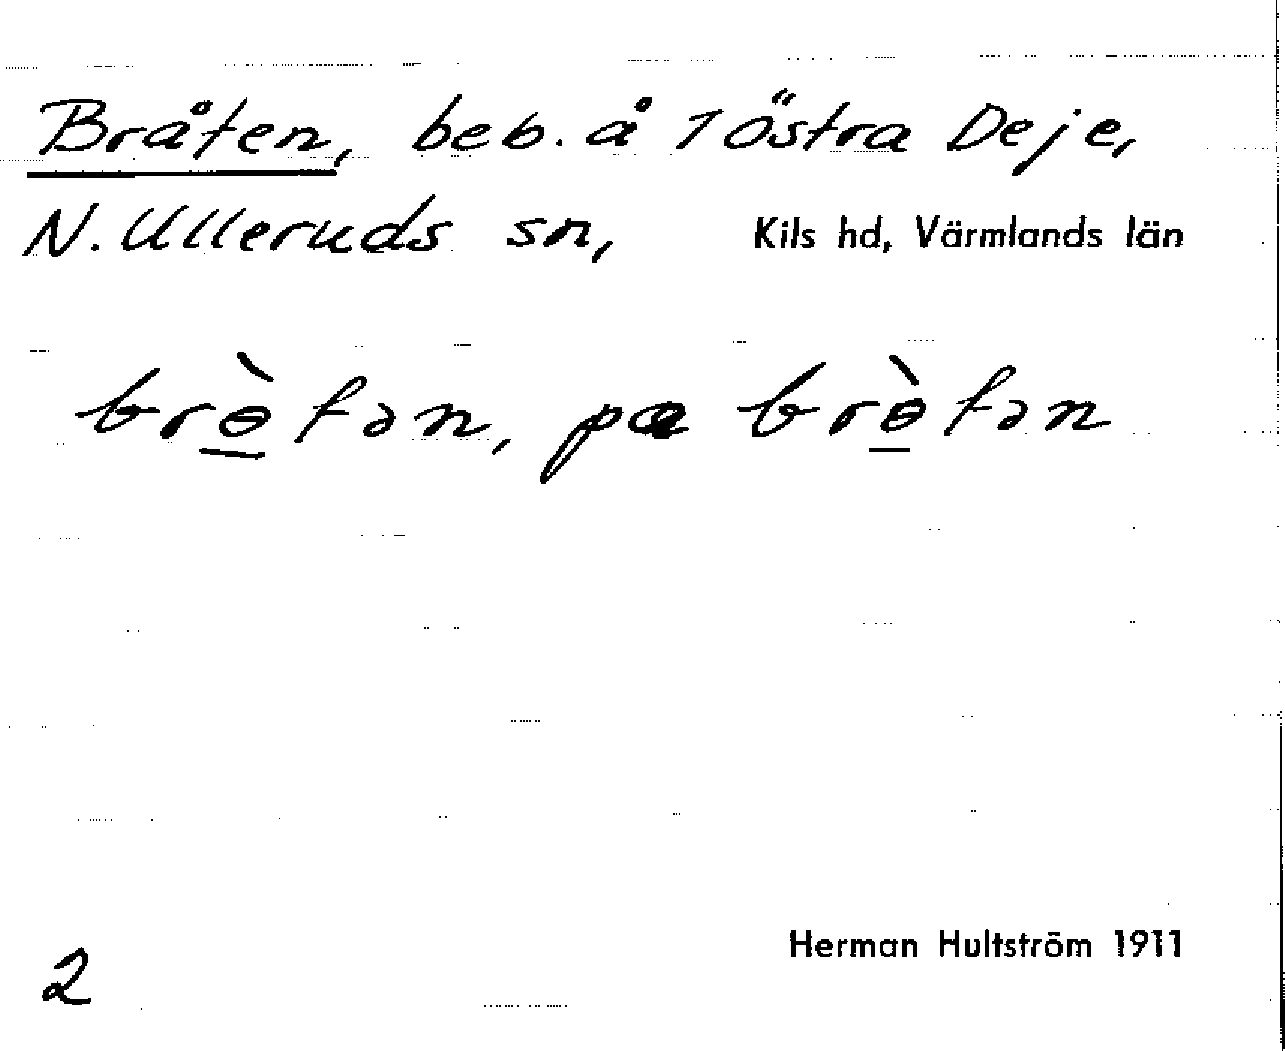 Bråten, beb. å 1 östra Deje,
N. Ulleruds sn, Kils hd, Värmlands län
brɵ̀tən, pa brɵ̀tən
Herman Hultström 1911
2